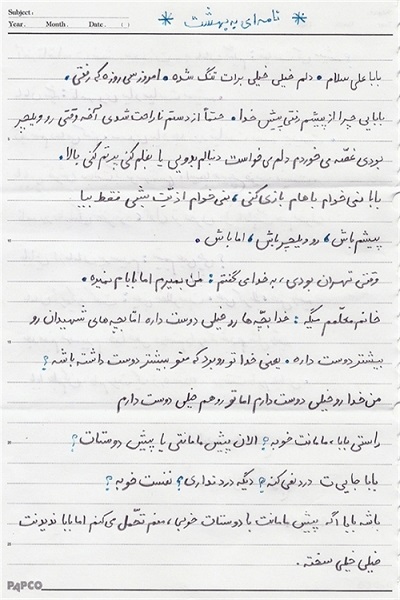 Subject:
Year.     Month.     Date.    (    )
* نامه ای به بهشت *
بابا علی سلام. دلم خیلی خیلی برات تنگ شده. امروز سی روزه که رفتی.
بابایی چرا از پیشم رفتی پیش خدا. حتماً از دستم ناراحت شدی آخه وقتی رو ویلچر
بودی غصّه می خوردم دلم می خواست دنبالم بدویی یا بغلم کنی پرتم کنی بالا.
بابا نمی خوام باهام بازی کنی، نمی خوام اذیّت بشی فقط بیا
پیشم باش، رو ویلچر باش، اما باش.
وقتی تهران بودی، به خدا می گفتم: من بمیرم اما بابام نمیره.
خانم معلّمم میگه: خدا بچّه ها رو خیلی دوست داره امّا بچه های شهیدان رو
بیشتر دوست داره. یعنی خدا تو رو برد که منو بیشتر دوست داشته باشه؟
من خدا رو خیلی دوست دارم اما تو رو هم خیلی دوست دارم
راستی بابا، مامانت خوبه؟ الان پیش مامانتی یا پیش دوستات؟
بابا جایی ت درد نمی کنه؟ دیگه درد نداری؟ نفست خوبه؟
باشه بابا اگه پیش مامانت یا دوستات خوبی، منم تحمّل می کنم اما بابا ندیدنت
خیلی خیلی سخته.
PAPCO